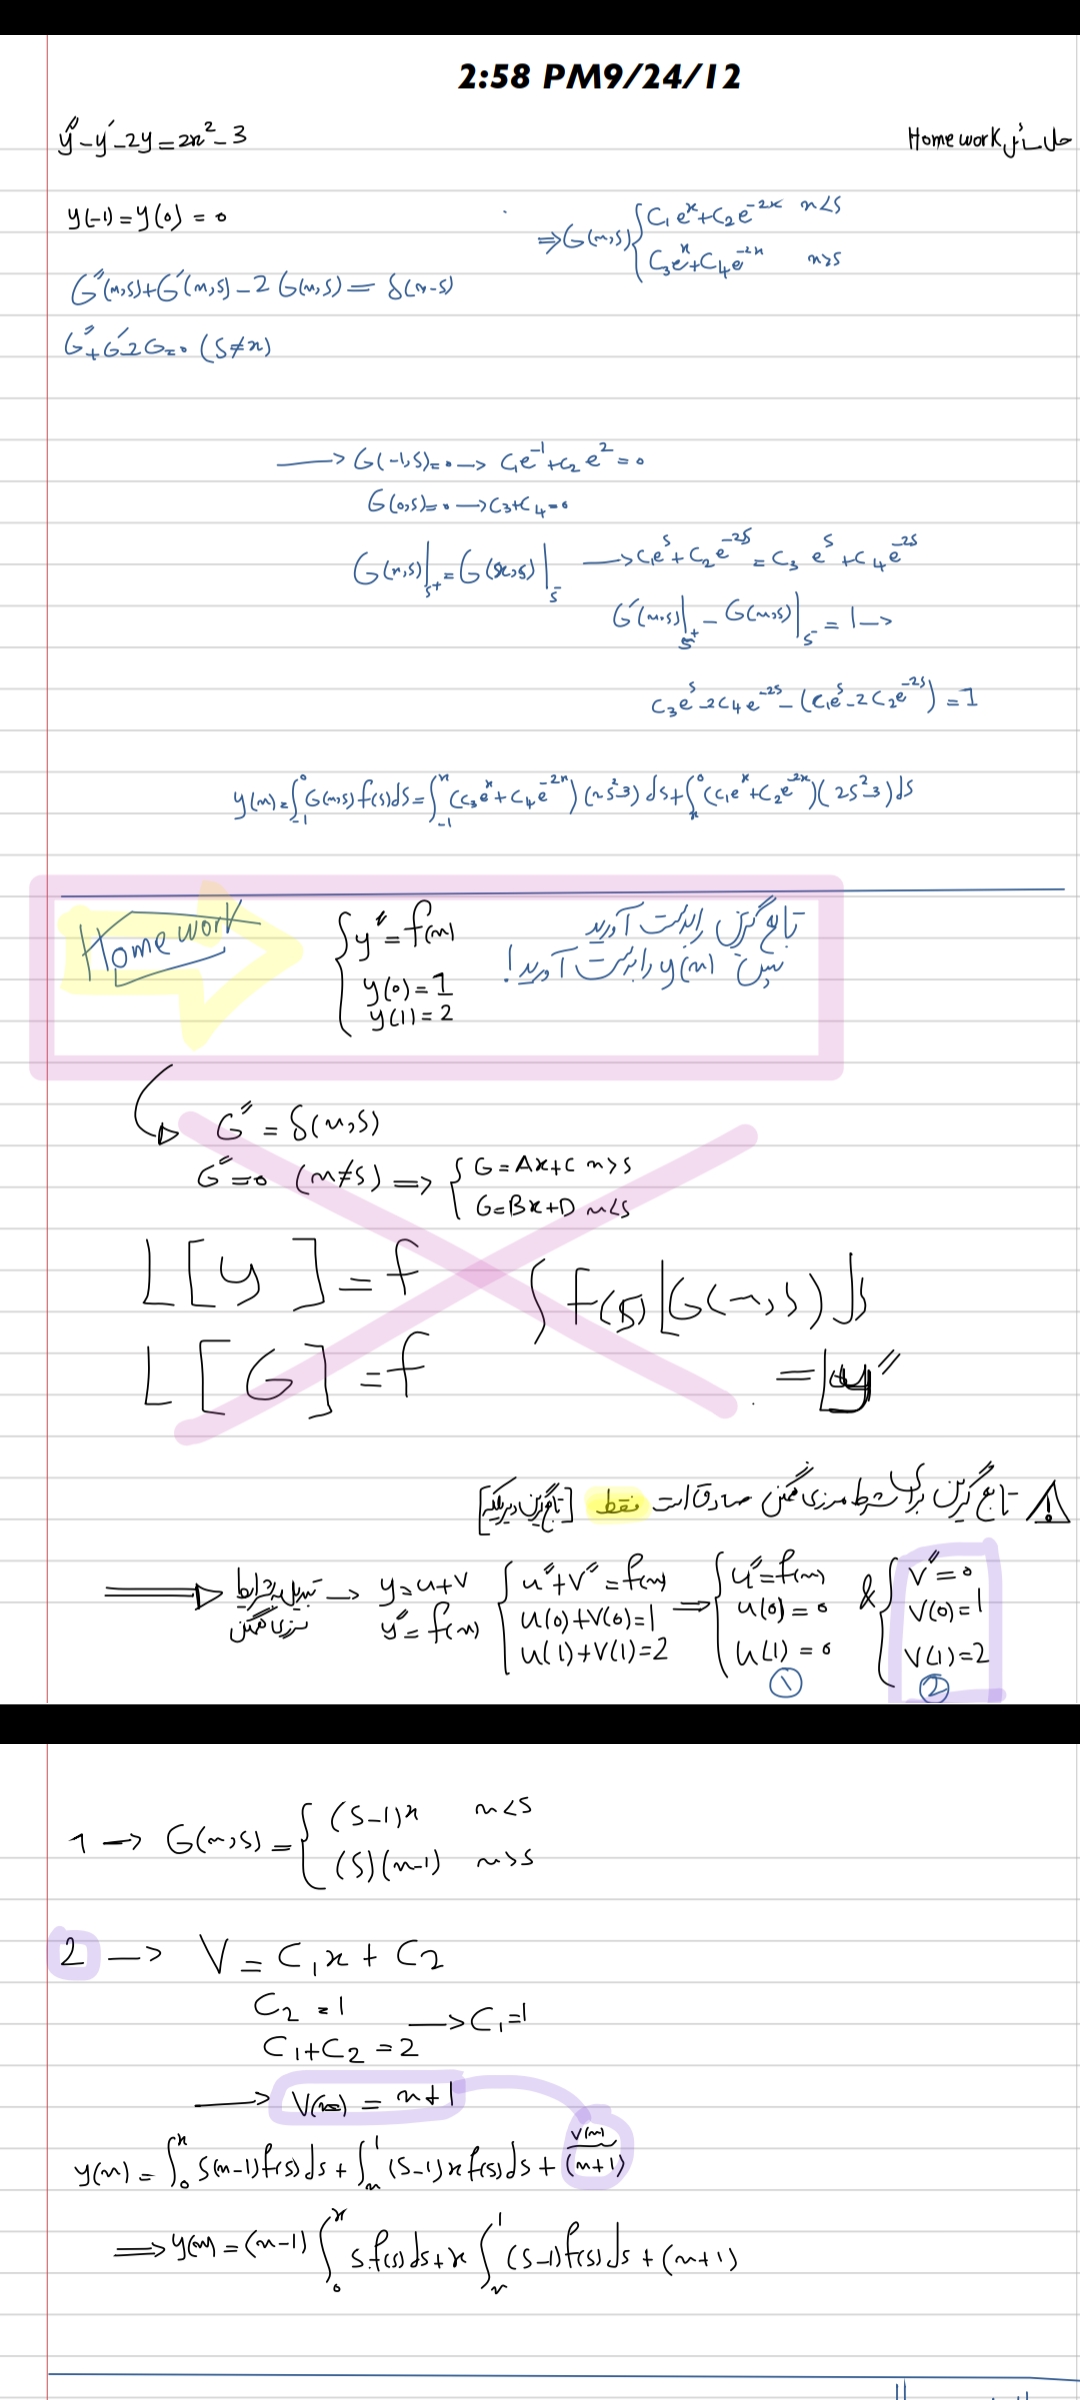 2:58 PM9/24/12
حل سائل Home work
y″-y′-2y=2x²-3
y(-1)=y(0)=0
⇒G(x,s){C₁eˣ+C₂e⁻²ˣ x<s
C₃eˣ+C₄e⁻²ˣ x>s
G″(x,s)+G′(x,s)-2G(x,s)=δ(x-s)
G″+G′2G=0 (s≠x)
→G(-1,s)=0→ C₁e⁻¹+C₂e²=0
G(0,s)=0→C₃+C₄=0
G(x,s)|ₛ₊=G(x,s)|ₛ₋ →C₁eˢ+C₂e⁻²ˢ=C₃eˢ+C₄e⁻²ˢ
G′(x,s)|ₛ₊-G(x,s)|ₛ₋=1→
C₃eˢ-2C₄e⁻²ˢ-(C₁eˢ-2C₂e⁻²ˢ)=1
y(x)=∫₋₁⁰G(x,s)f(s)ds=∫₋₁ˣ(C₃eˣ+C₄e⁻²ˣ)(2s²3)ds+∫ₓ⁰(C₁eˣ+C₂e⁻²ˣ)(2s²3)ds
Home work
{y″=f(x)
y(0)=1
y(1)=2
تابع گرین را بدست آورید
سپس y(x) را بدست آورید!
G″=δ(x,s)
G″=0 (x≠s)⇒{G=Ax+C x>s
G=Bx+D x<s
L[y]=f
∫f(s)LG(x,s)ds
L[G]=f
=Ly″
⚠ تابع گرین برای شرط مرزی همگن صادق است فقط [تابع گرین دیریکله]
⇒ تبدیل به شرایط مرزی همگن → y=u+v
y″=f(x)
{u″+v″=f(x)
u(0)+v(0)=1
u(1)+v(1)=2
⇒{u″=f(x)
u(0)=0
u(1)=0
①
&{v″=0
v(0)=1
v(1)=2
②
1→G(x,s)={(s-1)x x<s
(s)(x-1) x>s
2→V=C₁x+C₂
C₂=1
C₁+C₂=2 →C₁=1
→V(x)=x+1
V(x)
y(x)=∫₀ˣs(x-1)f(s)ds+∫ₓ¹(s-1)xf(s)ds+(x+1)
⇒y(x)=(x-1)∫₀ˣs.f(s)ds+x∫ₓ¹(s-1)f(s)ds+(x+1)